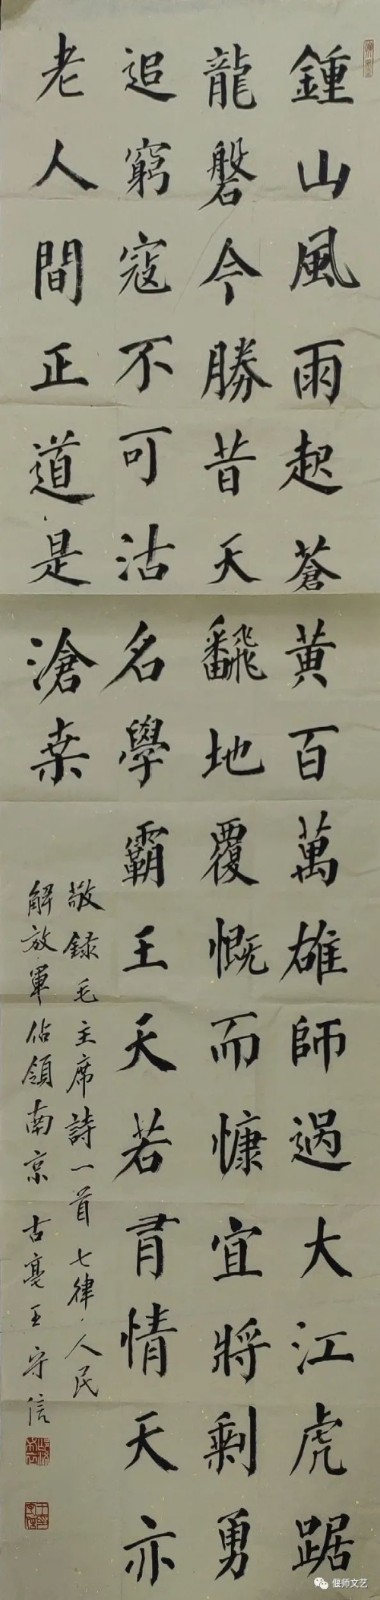 鍾山風雨起蒼黃百萬雄師過大江虎踞
龍磐今勝昔天翻地覆慨而慷宜將剩勇
追窮寇不可沽名學霸王天若有情天亦
老人間正道是滄桒
敬録毛主席詩一首七律·人民
解放軍佔領南京 古亳王守信
偃师文艺